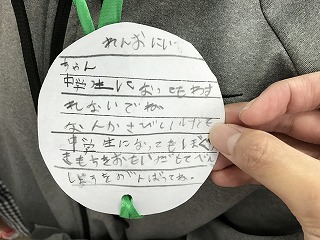 れんおにい
ちゃん
中学生になってもわす
れないでね
なんかさびしいけど
中学生になってもぼくの
きもちをおもいだしてべん
きょうをがんばってね。